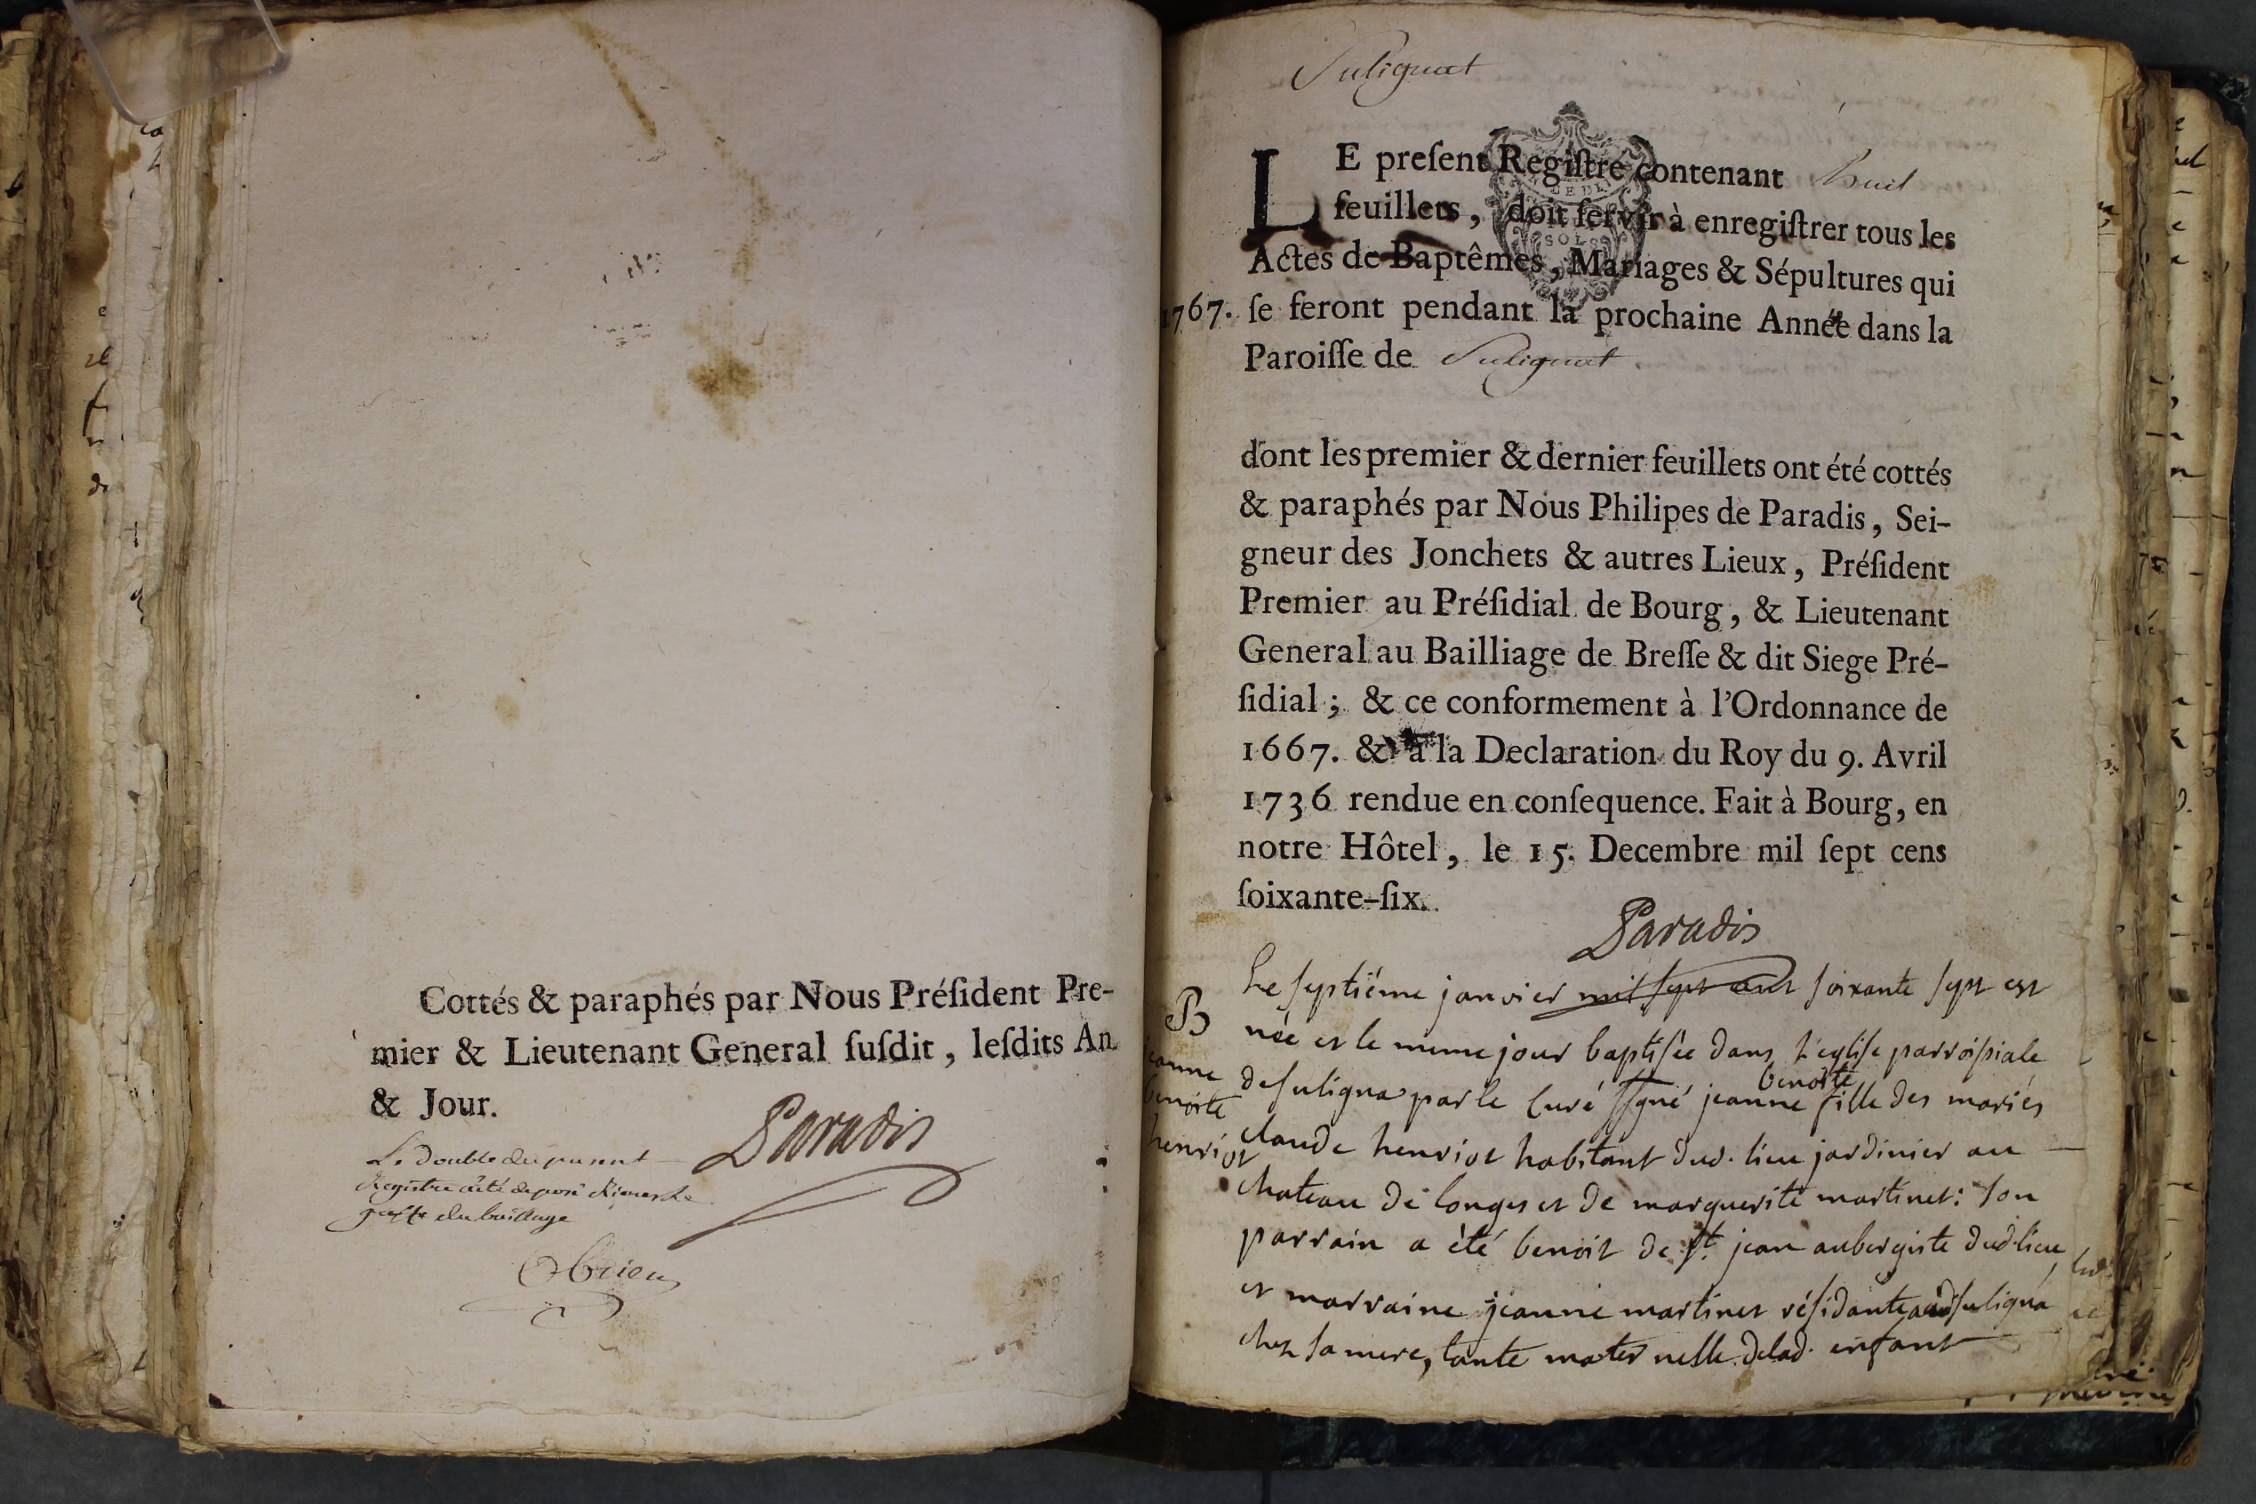 Cottés & paraphés par Nous Préſident Pre-
mier & Lieutenant General ſuſdit, leſdits An
& Jour.
Paradis
Le double du present
Registre a été deposé
greffe du bailliage
Sulignat
LE preſent Regiſtre contenant huit
feuillets, doit ſervir à enregiſtrer tous les
Actes de Baptêmes, Mariages & Sépultures qui
1767. ſe feront pendant la prochaine Année dans la
Paroiſſe de Sulignat.
dont les premier & dernier feuillets ont été cottés
& paraphés par Nous Philipes de Paradis, Sei-
gneur des Jonchets & autres Lieux, Préſident
Premier au Préſidial de Bourg, & Lieutenant
General au Bailliage de Breſſe & dit Siege Pré-
ſidial; & ce conformement à l'Ordonnance de
1667. & à la Declaration du Roy du 9. Avril
1736 rendue en conſequence. Fait à Bourg, en
notre Hôtel, le 15. Decembre mil ſept cens
ſoixante-ſix.
Paradis
B
jeanne
benoite
henriot
Le septiéme janvier mil sept cent soixante sept est
née et le meme jour baptisée dans l'eglise parroissiale
de suligna par le curé ssgné jeanne benoite fille des mariés
claude henriot habitant dud. lieu jardinier au
chateau de longes et de marguerite martinet: son
parrain a été benoit de st. jean aubergiste dud. lieu,
et marraine jeanne martinet résidante aud suligna
chez sa mere, tante maternelle de lad. enfant